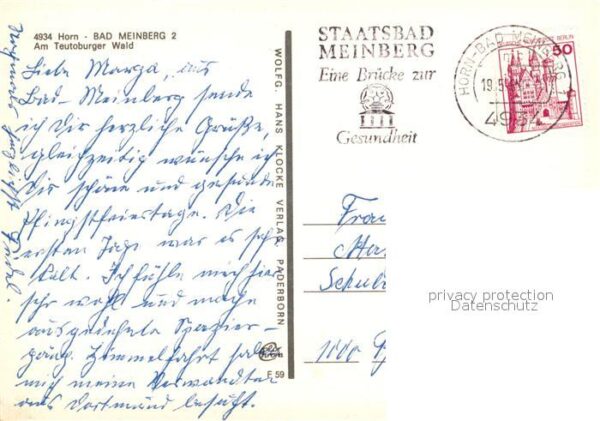 4934 Horn - BAD MEINBERG 2
Am Teutoburger Wald
Liebe Marga, aus
Bad-Meinberg sende
ich Dir herzliche Grüße,
gleichzeitig wünsche ich
Dir schöne und gesunde
Pfingstfeiertage. Die
ersten Tage war es sehr
kalt. Ich fühle mich hier
sehr wohl und mache
ausgedehnte Spazier-
gäng. Himmelfahrt hab
mich meine Verwandten
aus Dortmund besucht.
WOLFG. HANS KLOCKE VERLAG, PADERBORN
F 59
STAATSBAD
MEINBERG
Eine Brücke zur
Gesundheit
HORN-BAD MEINBERG 1
4934
BERLIN
50
Frau
Schul
1000
privacy protection
Datenschutz